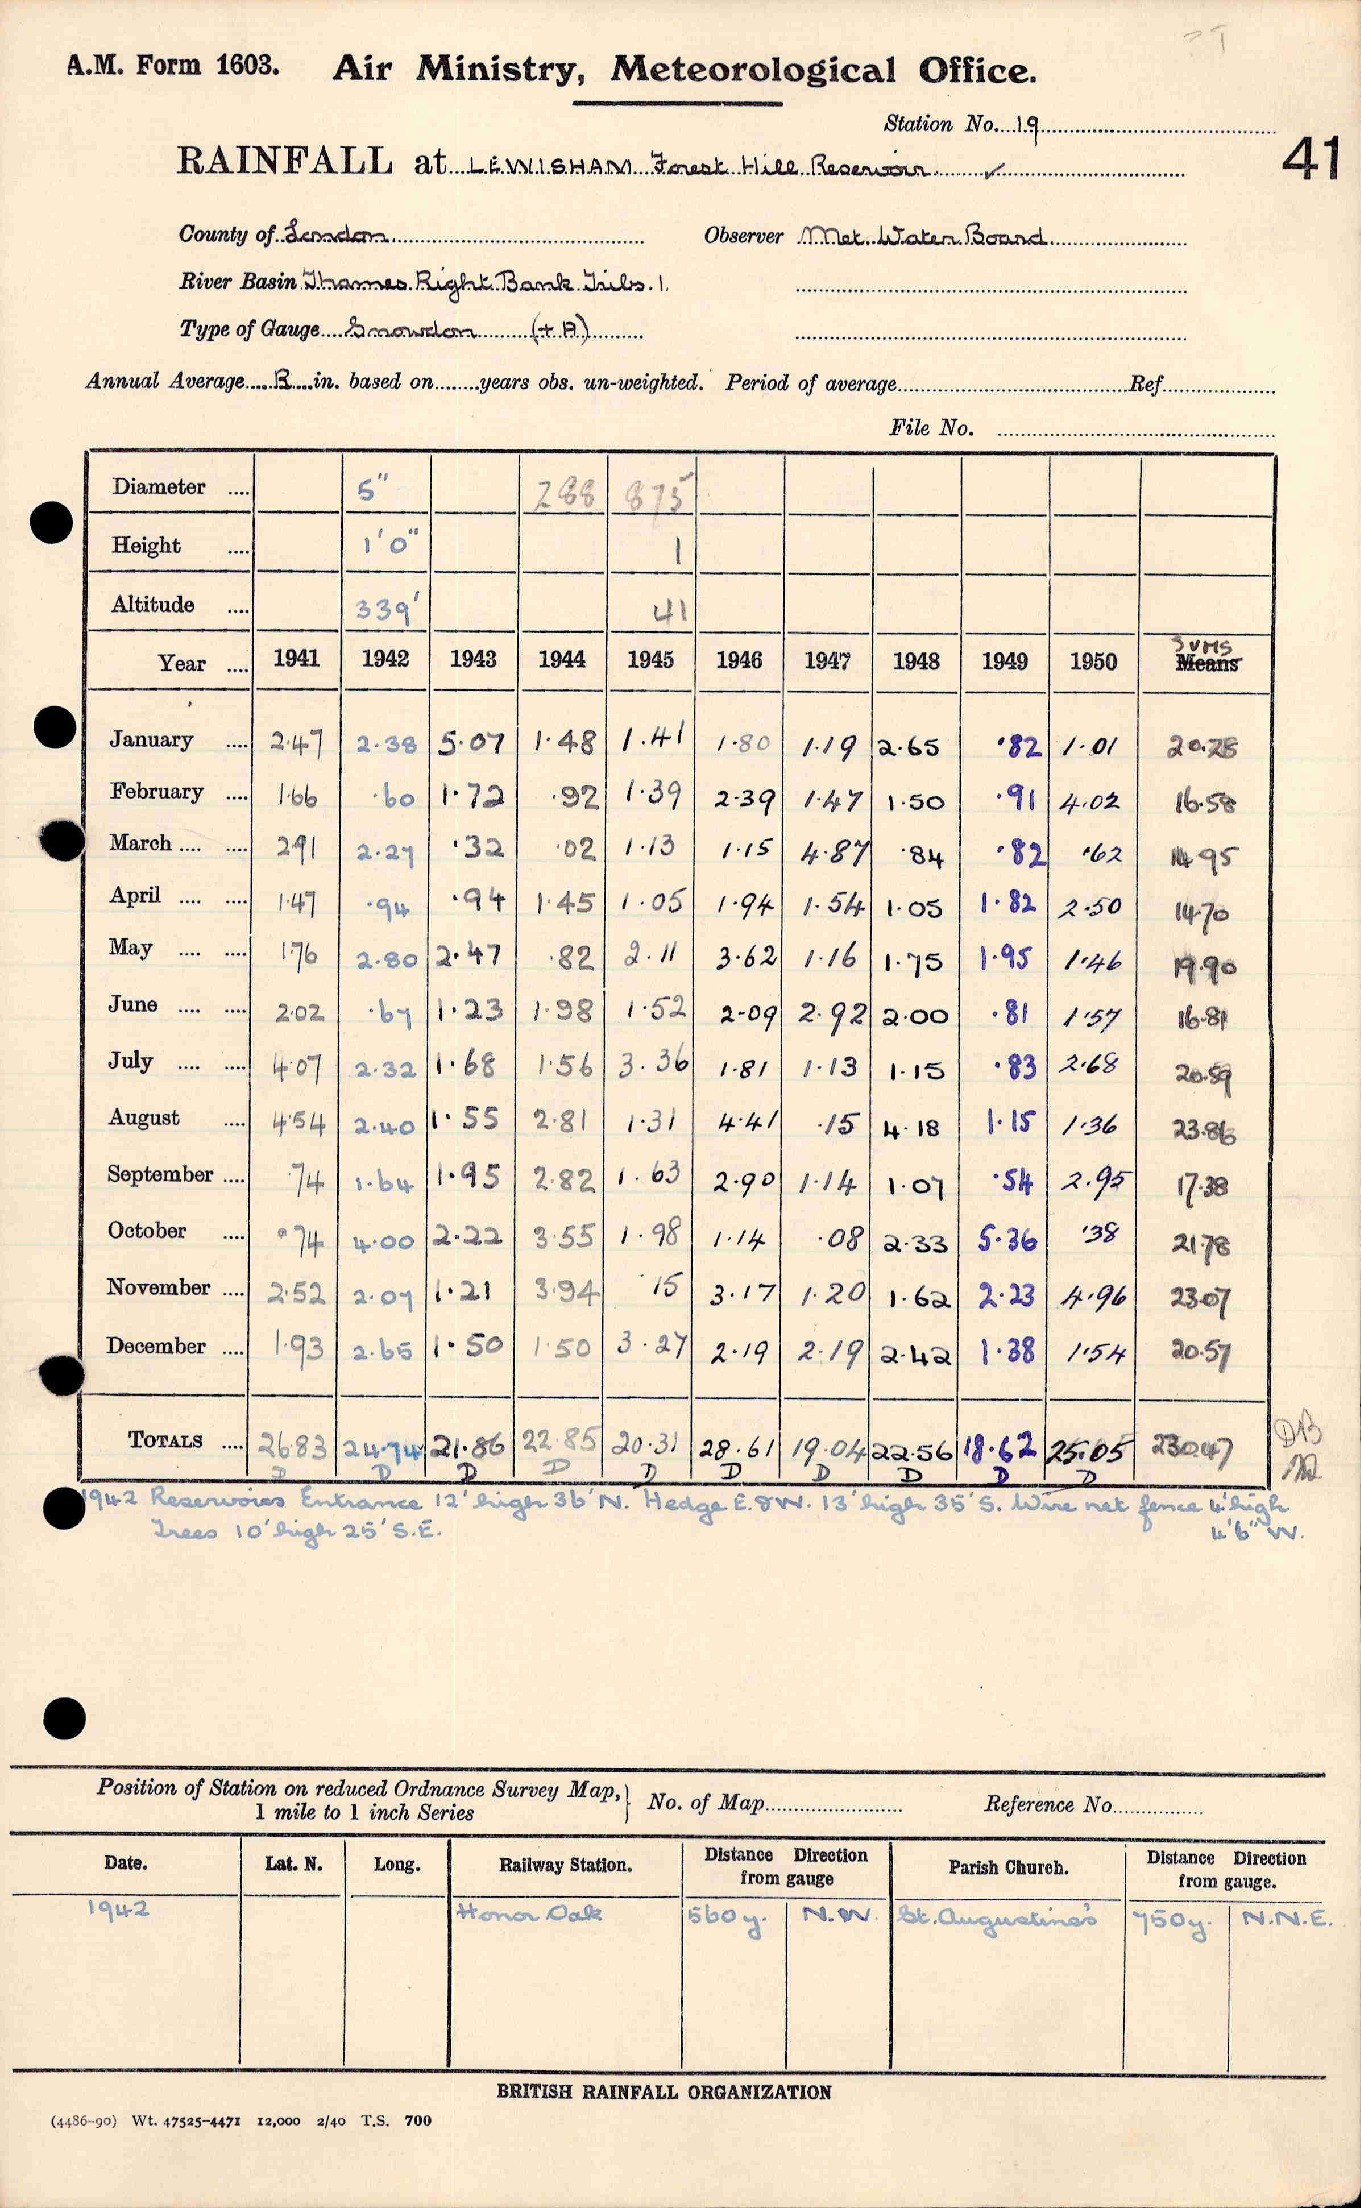 A.M. Form 1603. Air Ministry, Meteorological Office.
Station No. 19
41
RAINFALL at LEWISHAM Forest Hill Reservoir ✓
County of London Observer Met. Water Board
River Basin Thames Right Bank Tribs. 1.
Type of Gauge Snowdon (+A)
Annual Average R in. based on years obs. un-weighted. Period of average Ref.
File No.
Diameter .... 5" 288 875
Height .... 1'0" 1
Altitude .... 339' 41
Year .... 1941 1942 1943 1944 1945 1946 1947 1948 1949 1950 SUMS Means
January .... 2.47 2.38 5.07 1.48 1.41 1.80 1.19 2.65 .82 1.01 20.28
February .... 1.66 .60 1.72 .92 1.39 2.39 1.47 1.50 .91 4.02 16.58
March .... .... 2.91 2.27 .32 .02 1.13 1.15 4.87 .84 .82 .62 14.95
April .... .... 1.47 .94 .94 1.45 1.05 1.94 1.54 1.05 1.82 2.50 14.70
May .... .... 1.76 2.80 2.47 .82 2.11 3.62 1.16 1.75 1.95 1.46 19.90
June .... .... 2.02 .67 1.23 1.98 1.52 2.09 2.92 2.00 .81 1.57 16.81
July .... .... 4.07 2.32 1.68 1.56 3.36 1.81 1.13 1.15 .83 2.68 20.59
August .... 4.54 2.40 1.55 2.81 1.31 4.41 .15 4.18 1.15 1.36 23.86
September .... .74 1.64 1.95 2.82 1.63 2.90 1.14 1.07 .54 2.95 17.38
October .... .74 4.00 2.22 3.55 1.98 1.14 .08 2.33 5.36 .38 21.78
November .... 2.52 2.07 1.21 3.94 .15 3.17 1.20 1.62 2.23 4.96 23.07
December .... 1.93 2.65 1.50 1.50 3.27 2.19 2.19 2.42 1.38 1.54 20.57
TOTALS .... 26.83 24.74 21.86 22.85 20.31 28.61 19.04 22.56 18.62 25.05 230.47
D D D D D D D D D D
1942 Reservoirs Entrance 12' high 36' N. Hedge E. & W. 13' high 35' S. Wire net fence 4' high
Trees 10' high 25' S.E. 4'6" W.
Position of Station on reduced Ordnance Survey Map, } No. of Map Reference No.
1 mile to 1 inch Series
Date. Lat. N. Long. Railway Station. Distance Direction from gauge Parish Church. Distance Direction from gauge.
1942 Honor Oak 560y. N.W. St. Augustine's 750y. N.N.E.
BRITISH RAINFALL ORGANIZATION
(4486-90) Wt. 47525-4471 12,000 2/40 T.S. 700